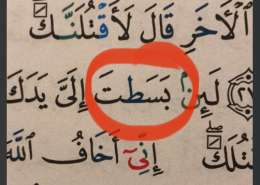 ٱلْأَخَرِ قَالَ لَأَقْتُلَنَّكَ
٢٧ لَئِنۢ بَسَطتَ إِلَىَّ يَدَكَ
إِنِّىٓ أَخَافُ ٱللَّهَ